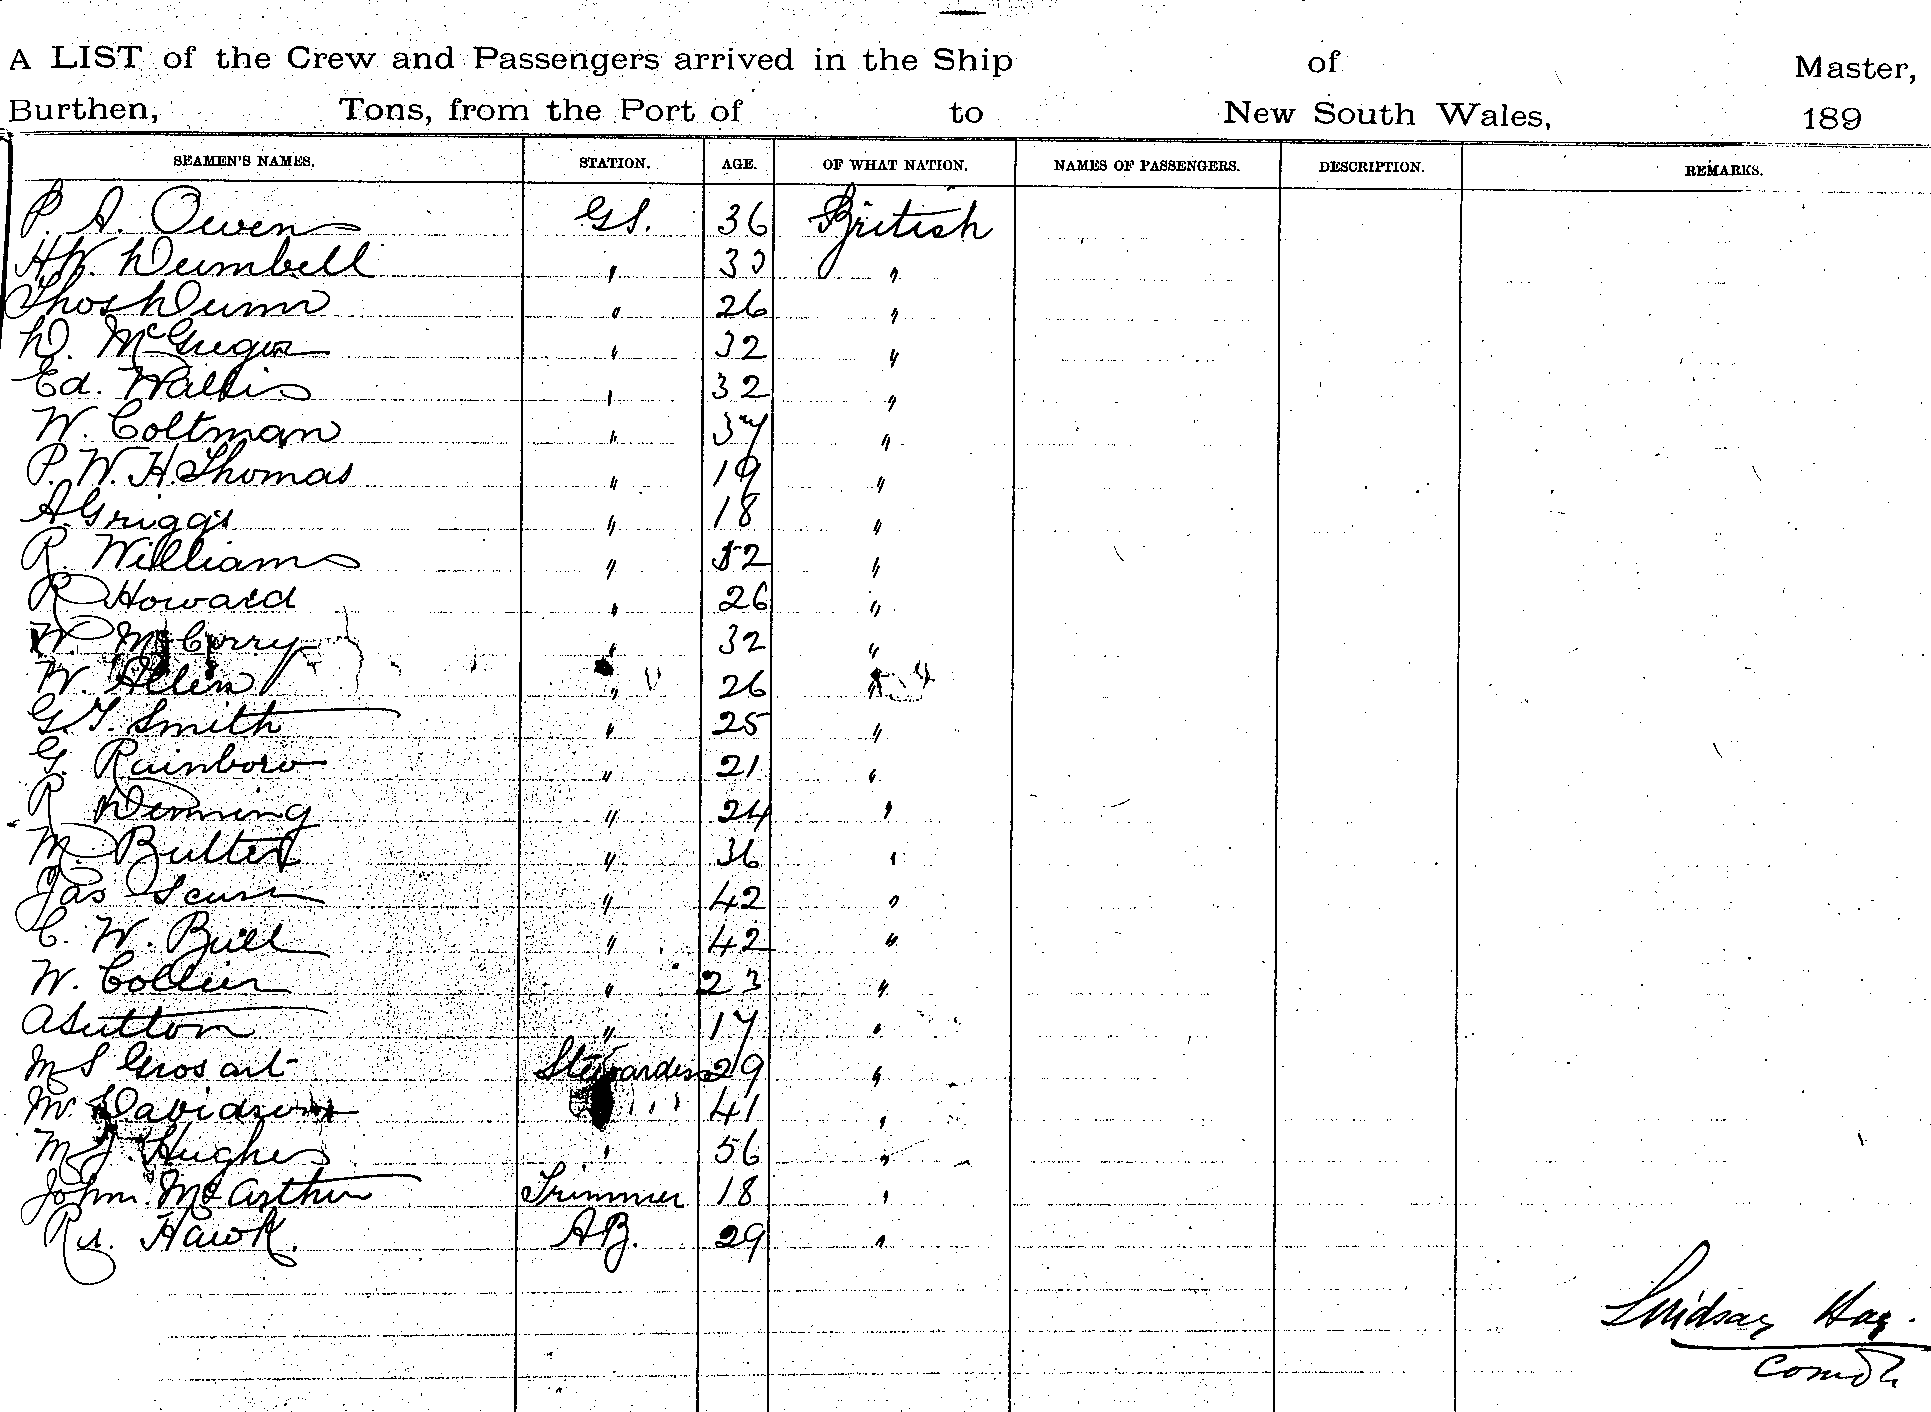 A LIST of the Crew and Passengers arrived in the Ship of Master,
Burthen, Tons, from the Port of to New South Wales, 189
SEAMEN'S NAMES. STATION. AGE. OF WHAT NATION. NAMES OF PASSENGERS. DESCRIPTION. REMARKS.
P. A. Owen G.S. 36 British
H.W. Dumbell " 33 "
Thos Dunn " 26 "
D. McGregor " 32 "
Ed. Wallis " 32 "
W. Coltman " 37 "
P. W. H. Thomas " 19 "
A Griggs " 18 "
R. Williams " 52 "
R Howard " 26 "
W. McCorry " 32 "
W. Allen " 26 "
G. T. Smith " 25 "
G. Rainbow " 21 "
R Denning " 24 "
M. Butler " 36 "
Jas " 42 "
C. W. Bull " 42 "
W. Collier " 23 "
A Sutton " 17 "
M S Grosart Stewardess 29 "
M. Davidson " 41 "
M J. Hughes " 56 "
John McArthur Trimmer 18 "
Hawk. A.B. 29 "
Lindsay Hay.
Comdr